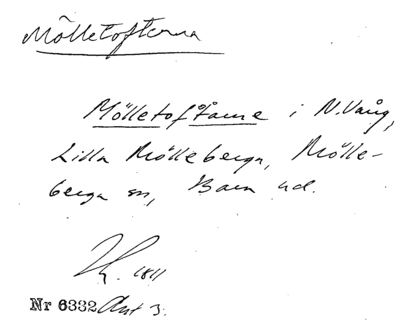 Mölletofterna
Mölletoftane i N. Vång,
Lilla Mölleberga, Mölle-
berga sn, Bara hd.
1811
Nr 6332 Akt 3.